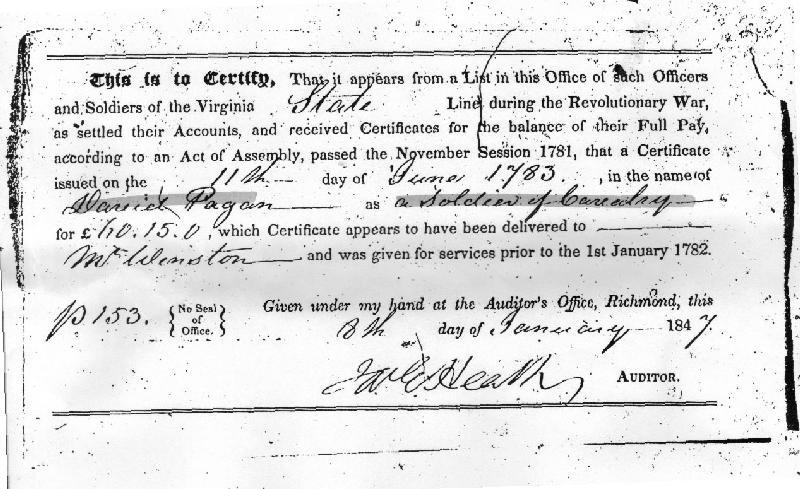 This is to Certify, That it appears from a List in this Office of such Officers
and Soldiers of the Virginia State Line during the Revolutionary War,
as settled their Accounts, and received Certificates for the balance of their Full Pay,
according to an Act of Assembly, passed the November Session 1781, that a Certificate
issued on the 11th day of June 1783. , in the name of
David Pagan as a Soldier of Cavalry
for £ 60.15.0, which Certificate appears to have been delivered to
Mr Winston and was given for services prior to the 1st January 1782.
p 153. { No Seal of Office. } Given under my hand at the Auditor's Office, Richmond, this
8th day of January 1847.
Heath, AUDITOR.